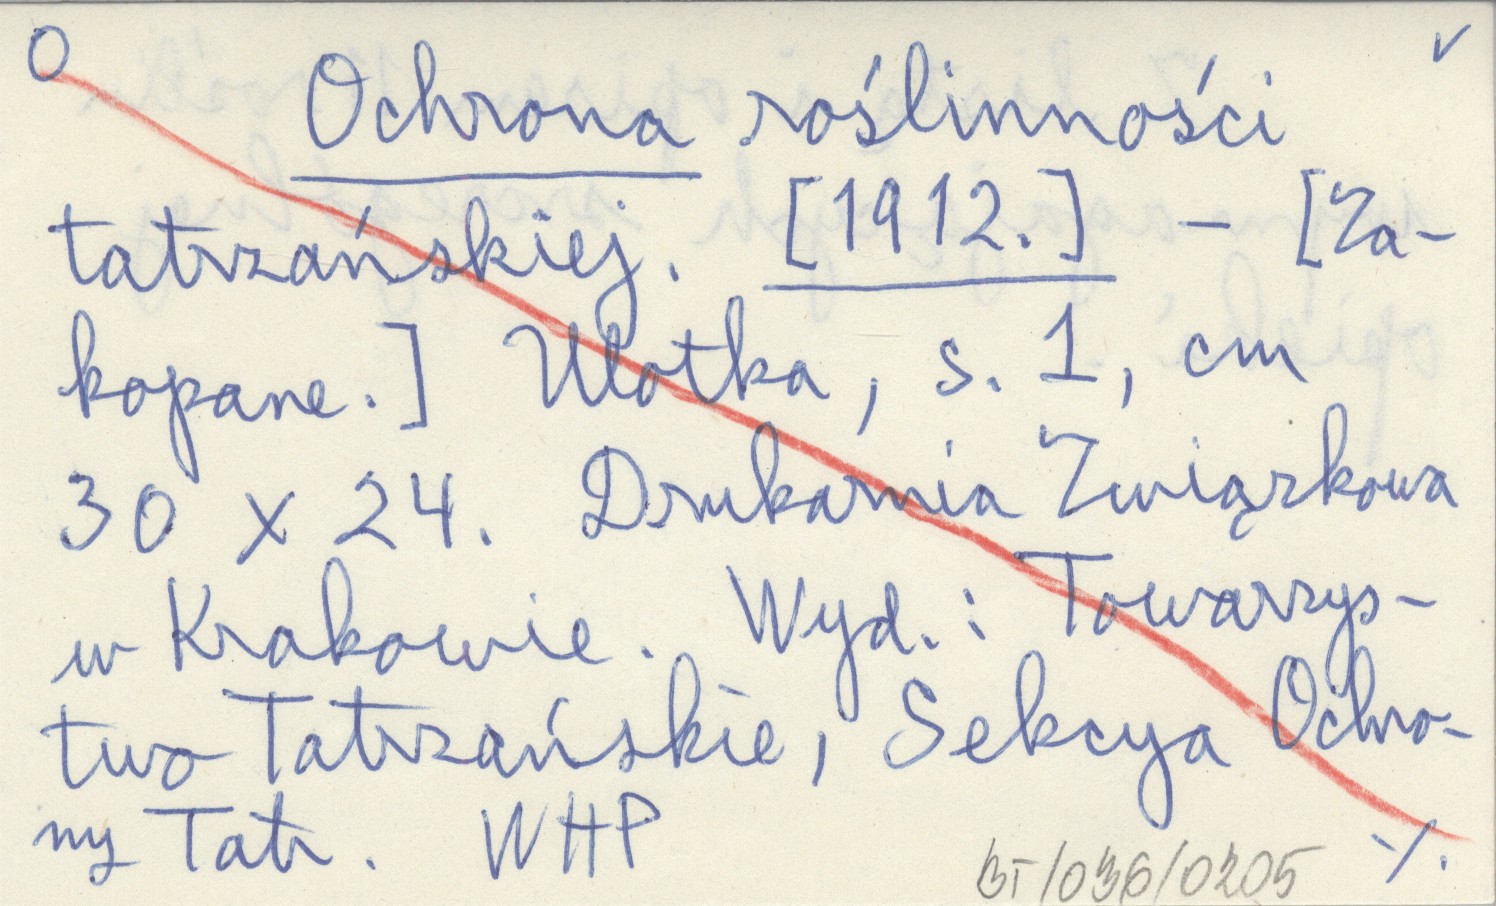 O
Ochrona roślinności
tatrzańskiej. [1912.] – [Za-
kopane.] Ulotka, s. 1, cm
30 x 24. Drukarnia Związkowa
w Krakowie. Wyd.: Towarzys-
two Tatrzańskie, Sekcya Ochro-
ny Tatr. WHP
BT/036/0205 ·/.